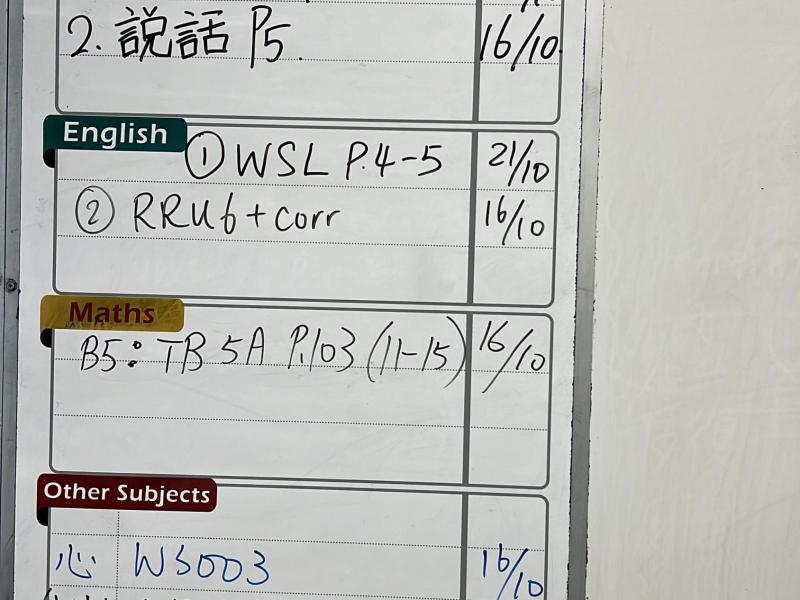 2. 説話 P5. 16/10.
English
① WSL P.4-5 21/10
② RRU6 + corr 16/10
Maths
B5: TB 5A P.103 (11-15) 16/10
Other Subjects
心 WS003 16/10